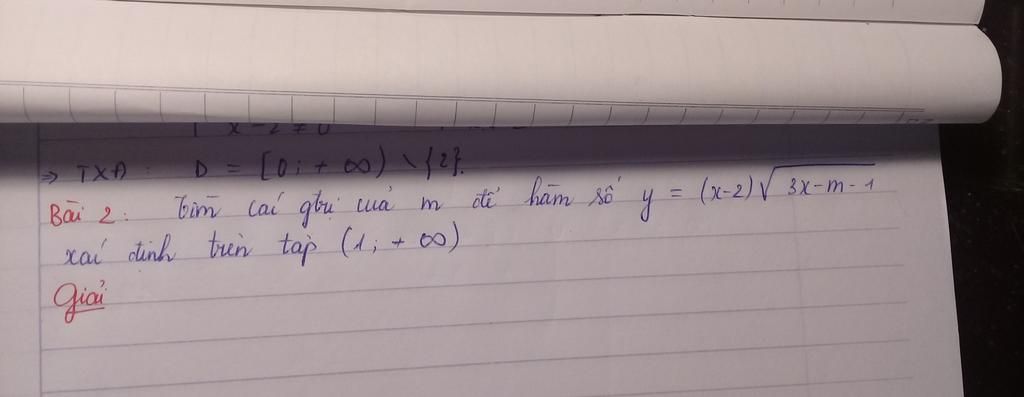 x - 2 ≠ 0
⇒ TXĐ: D = [0; + ∞) \ {2}.
Bài 2: tìm các gtrị của m để hàm số y = (x-2)√3x-m-1
xác định trên tập (1; + ∞)
Giải